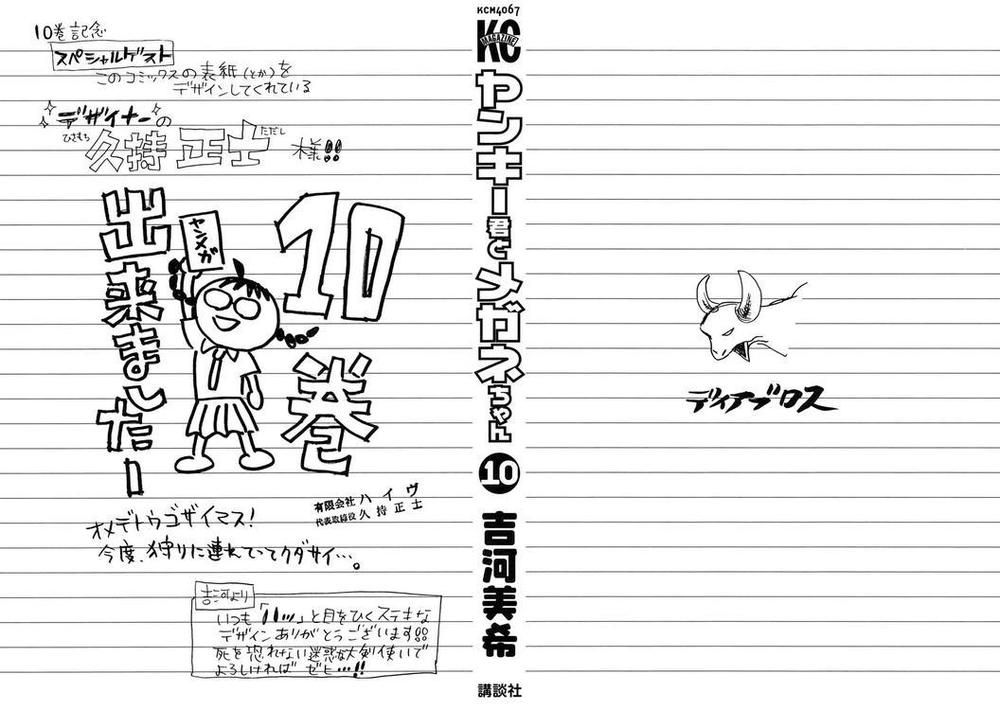 10巻記念
スペシャルゲスト
このコミックスの表紙(とか)を
デザインしてくれている
デザイナーの
ひさもち ただし
久持 正士 様!!
10巻
出来ましたー
ヤンメガ
有限会社ハイヴ
代表取締役 久持正士
オメデトウゴザイマス!
今度、狩りに連れていてクダサイ…。
吉河より
いつも「ハッ」と目をひくステキな
デザインありがとうございます!!
死を恐れない迷惑な大剣使いで
よろしければ ゼヒ…!!
KCM4067
KC
MAGAZINE
ヤンキー君とメガネちゃん
10
吉河美希
講談社
ディアブロス